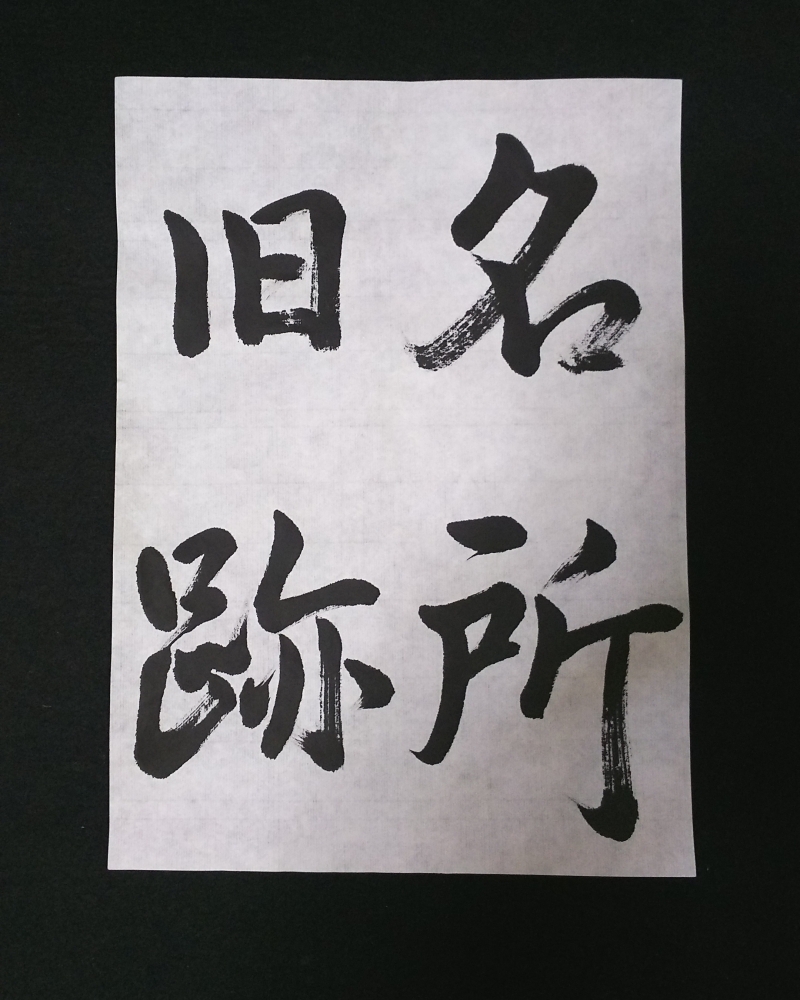 名所
旧跡